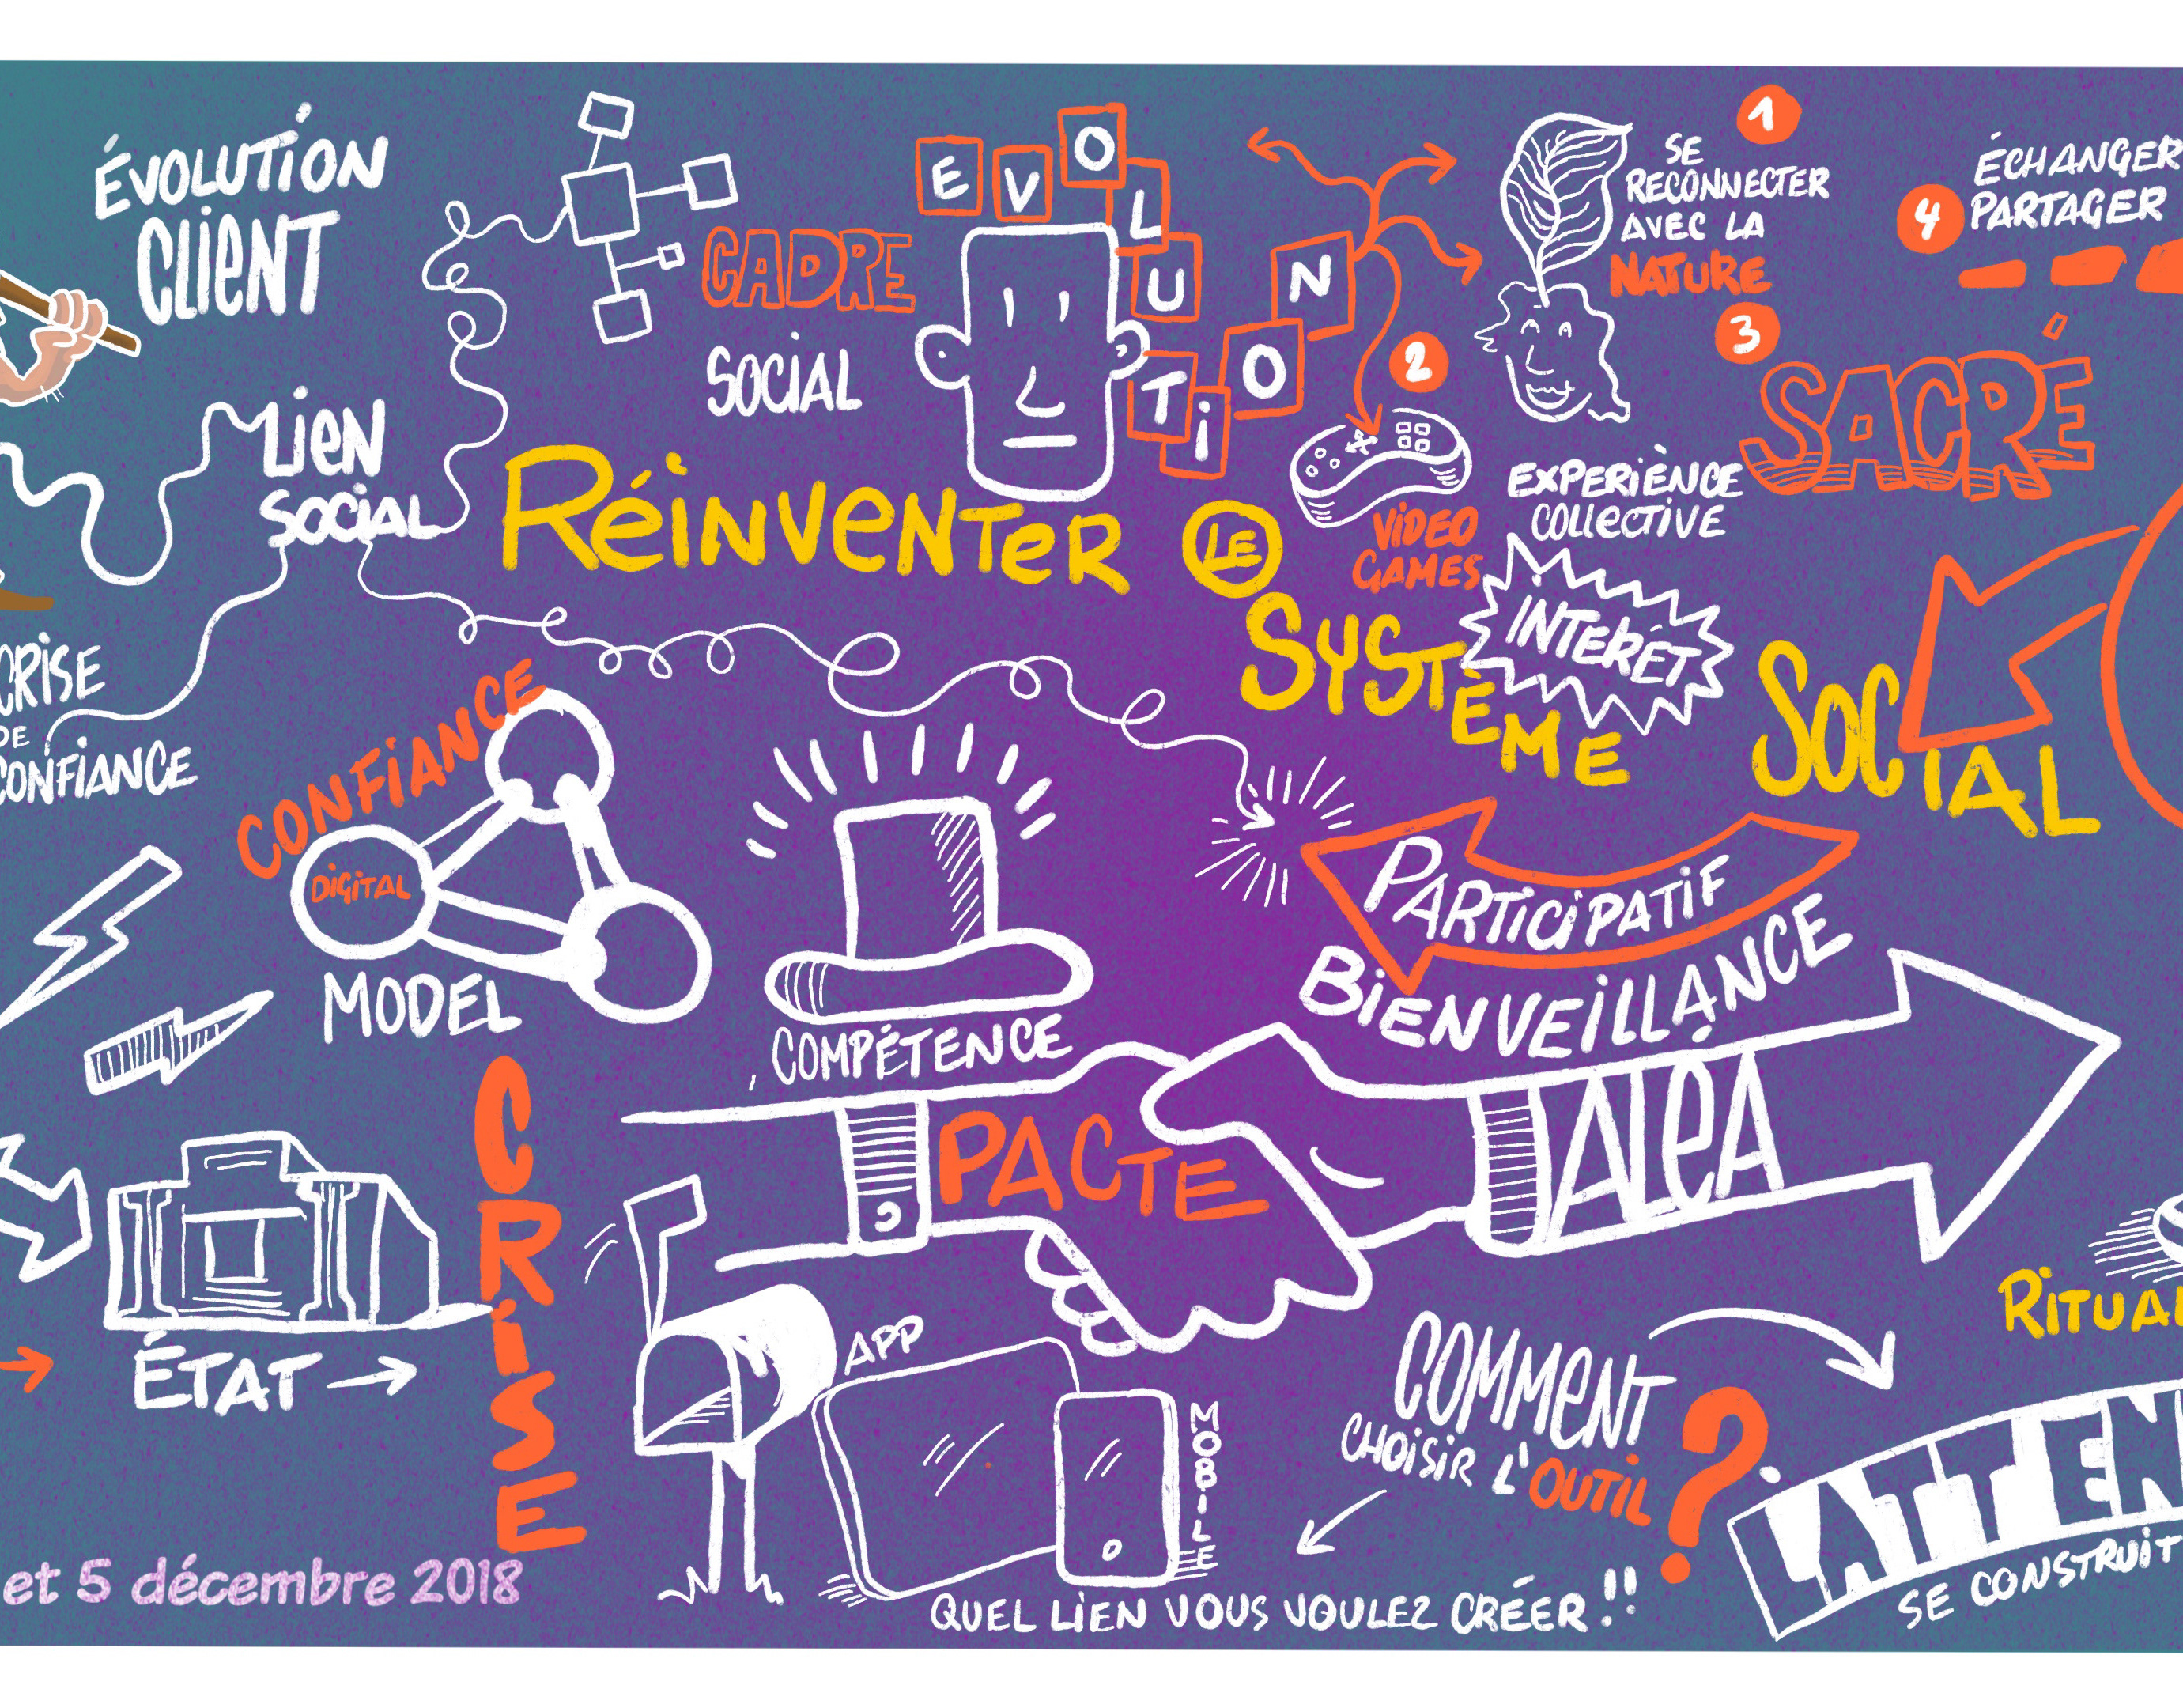 ÉVOLUTION
CLIENT
LIEN
SOCIAL
CRISE
DE
CONFIANCE
CADRE
SOCIAL
EVOLUTION
1
SE
RECONNECTER
AVEC LA
NATURE
2
VIDEO
GAMES
3
SACRÉ
EXPERIÈNCE
COLLECTIVE
INTERÊT
4
ÉCHANGER
PARTAGER
RÉINVENTER LE
SYSTÈME
SOCIAL
CONFIANCE
DIGITAL
MODEL
COMPÉTENCE
PARTICIPATIF
BIENVEILLANCE
PACTE
ALEA
CRISE
ÉTAT
APP
MOBILE
COMMENT
CHOISIR L'OUTIL ?
QUEL LIEN VOUS VOULEZ CRÉER !!
RITUAL
SE CONSTRUIT
et 5 décembre 2018